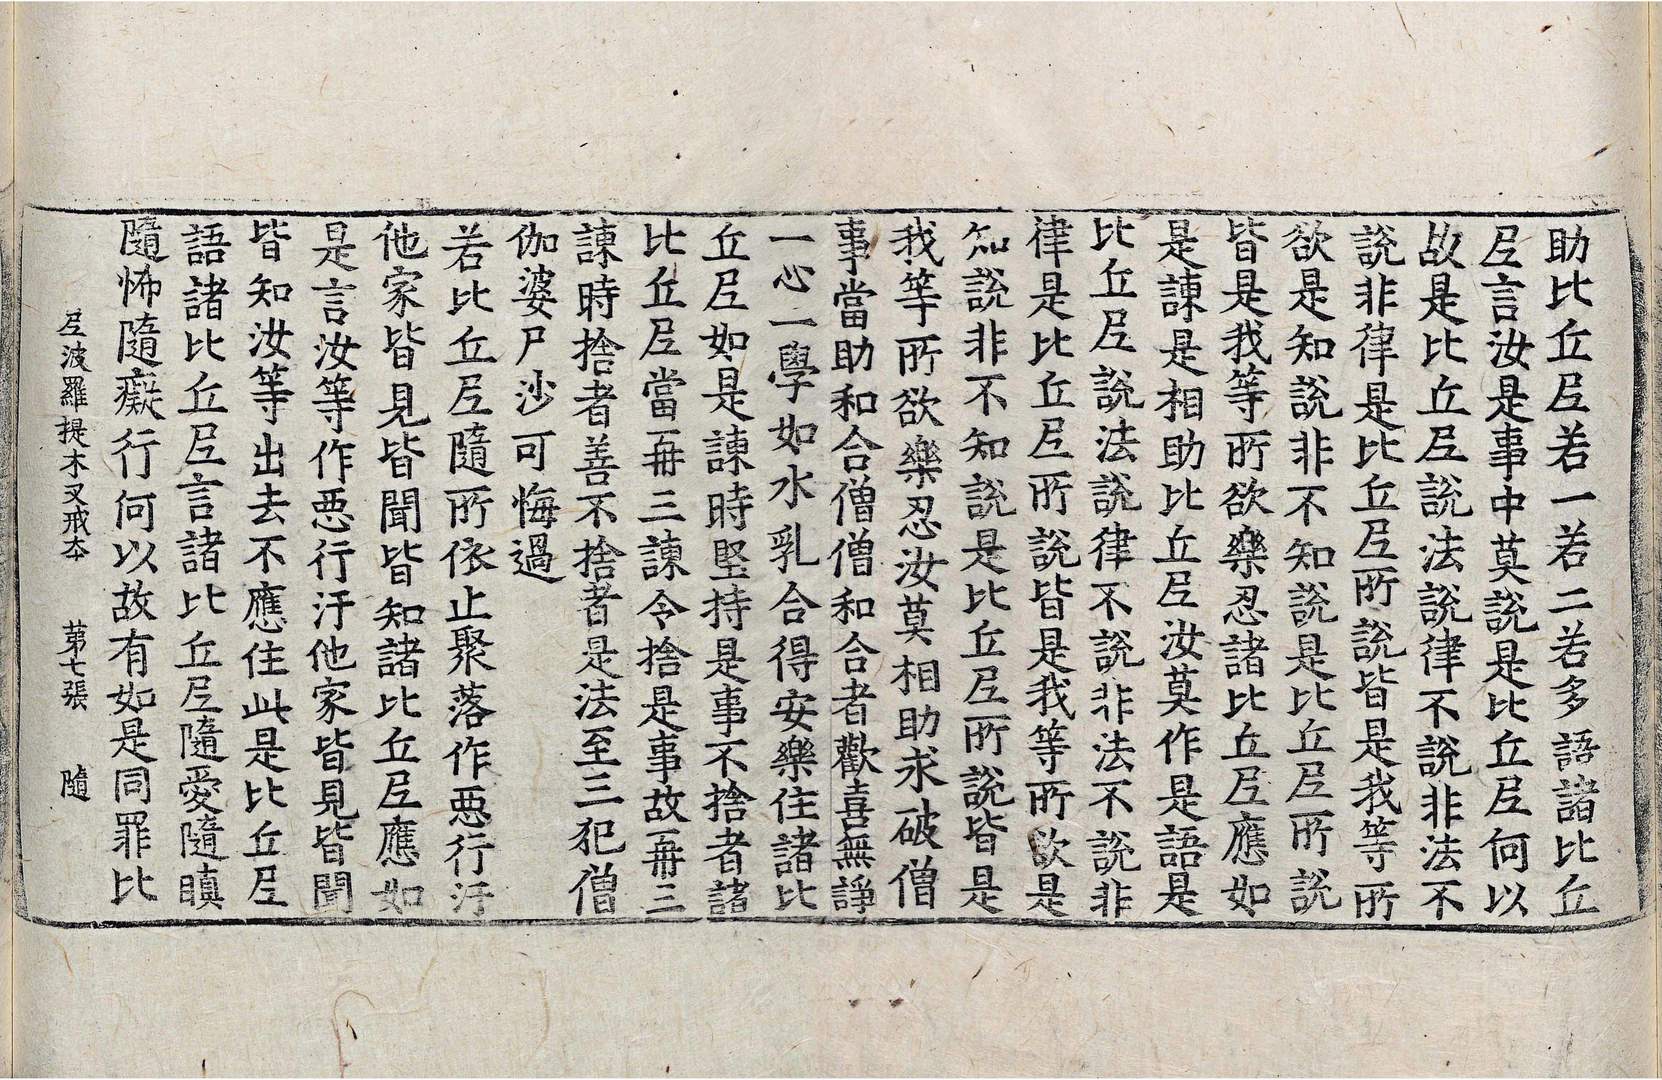 助比丘尼若一若二若多語諸比丘
尼言汝是事中莫說是比丘尼何以
故是比丘尼說法說律不說非法不
說非律是比丘尼所說皆是我等所
欲是知說非不知說是比丘尼所說
皆是我等所欲樂忍諸比丘尼應如
是諫是相助比丘尼汝莫作是語是
比丘尼說法說律不說非法不說非
律是比丘尼所說皆是我等所欲是
知說非不知說是比丘尼所說皆是
我等所欲樂忍汝莫相助求破僧
事當助和合僧僧和合者歡喜無諍
一心一學如水乳合得安樂住諸比
丘尼如是諫時堅持是事不捨者諸
比丘尼當再三諫令捨是事故再三
諫時捨者善不捨者是法至三犯僧
伽婆尸沙可悔過
若比丘尼隨所依止聚落作悪行汙
他家皆見皆聞皆知諸比丘尼應如
是言汝等作悪行汙他家皆見皆聞
皆知汝等出去不應住此是比丘尼
語諸比丘尼言諸比丘尼隨愛隨瞋
隨怖隨癡行何以故有如是同罪比
尼波羅提木叉戒本 第七張 隨